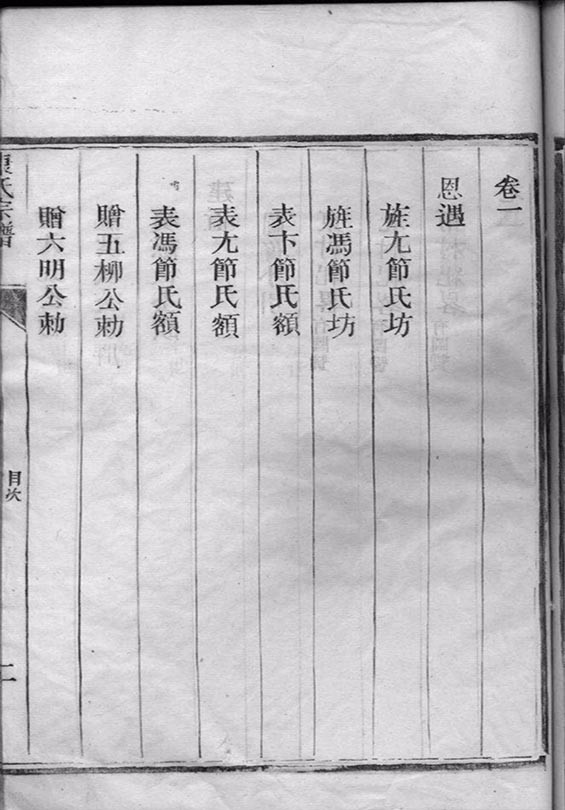 卷一
恩遇
旌尤節氏坊
旌馮節氏坊
表卞節氏額
表尤節氏額
表馮節氏額
贈五柳公勅
贈六明公勅
氏宗譜
目次
二